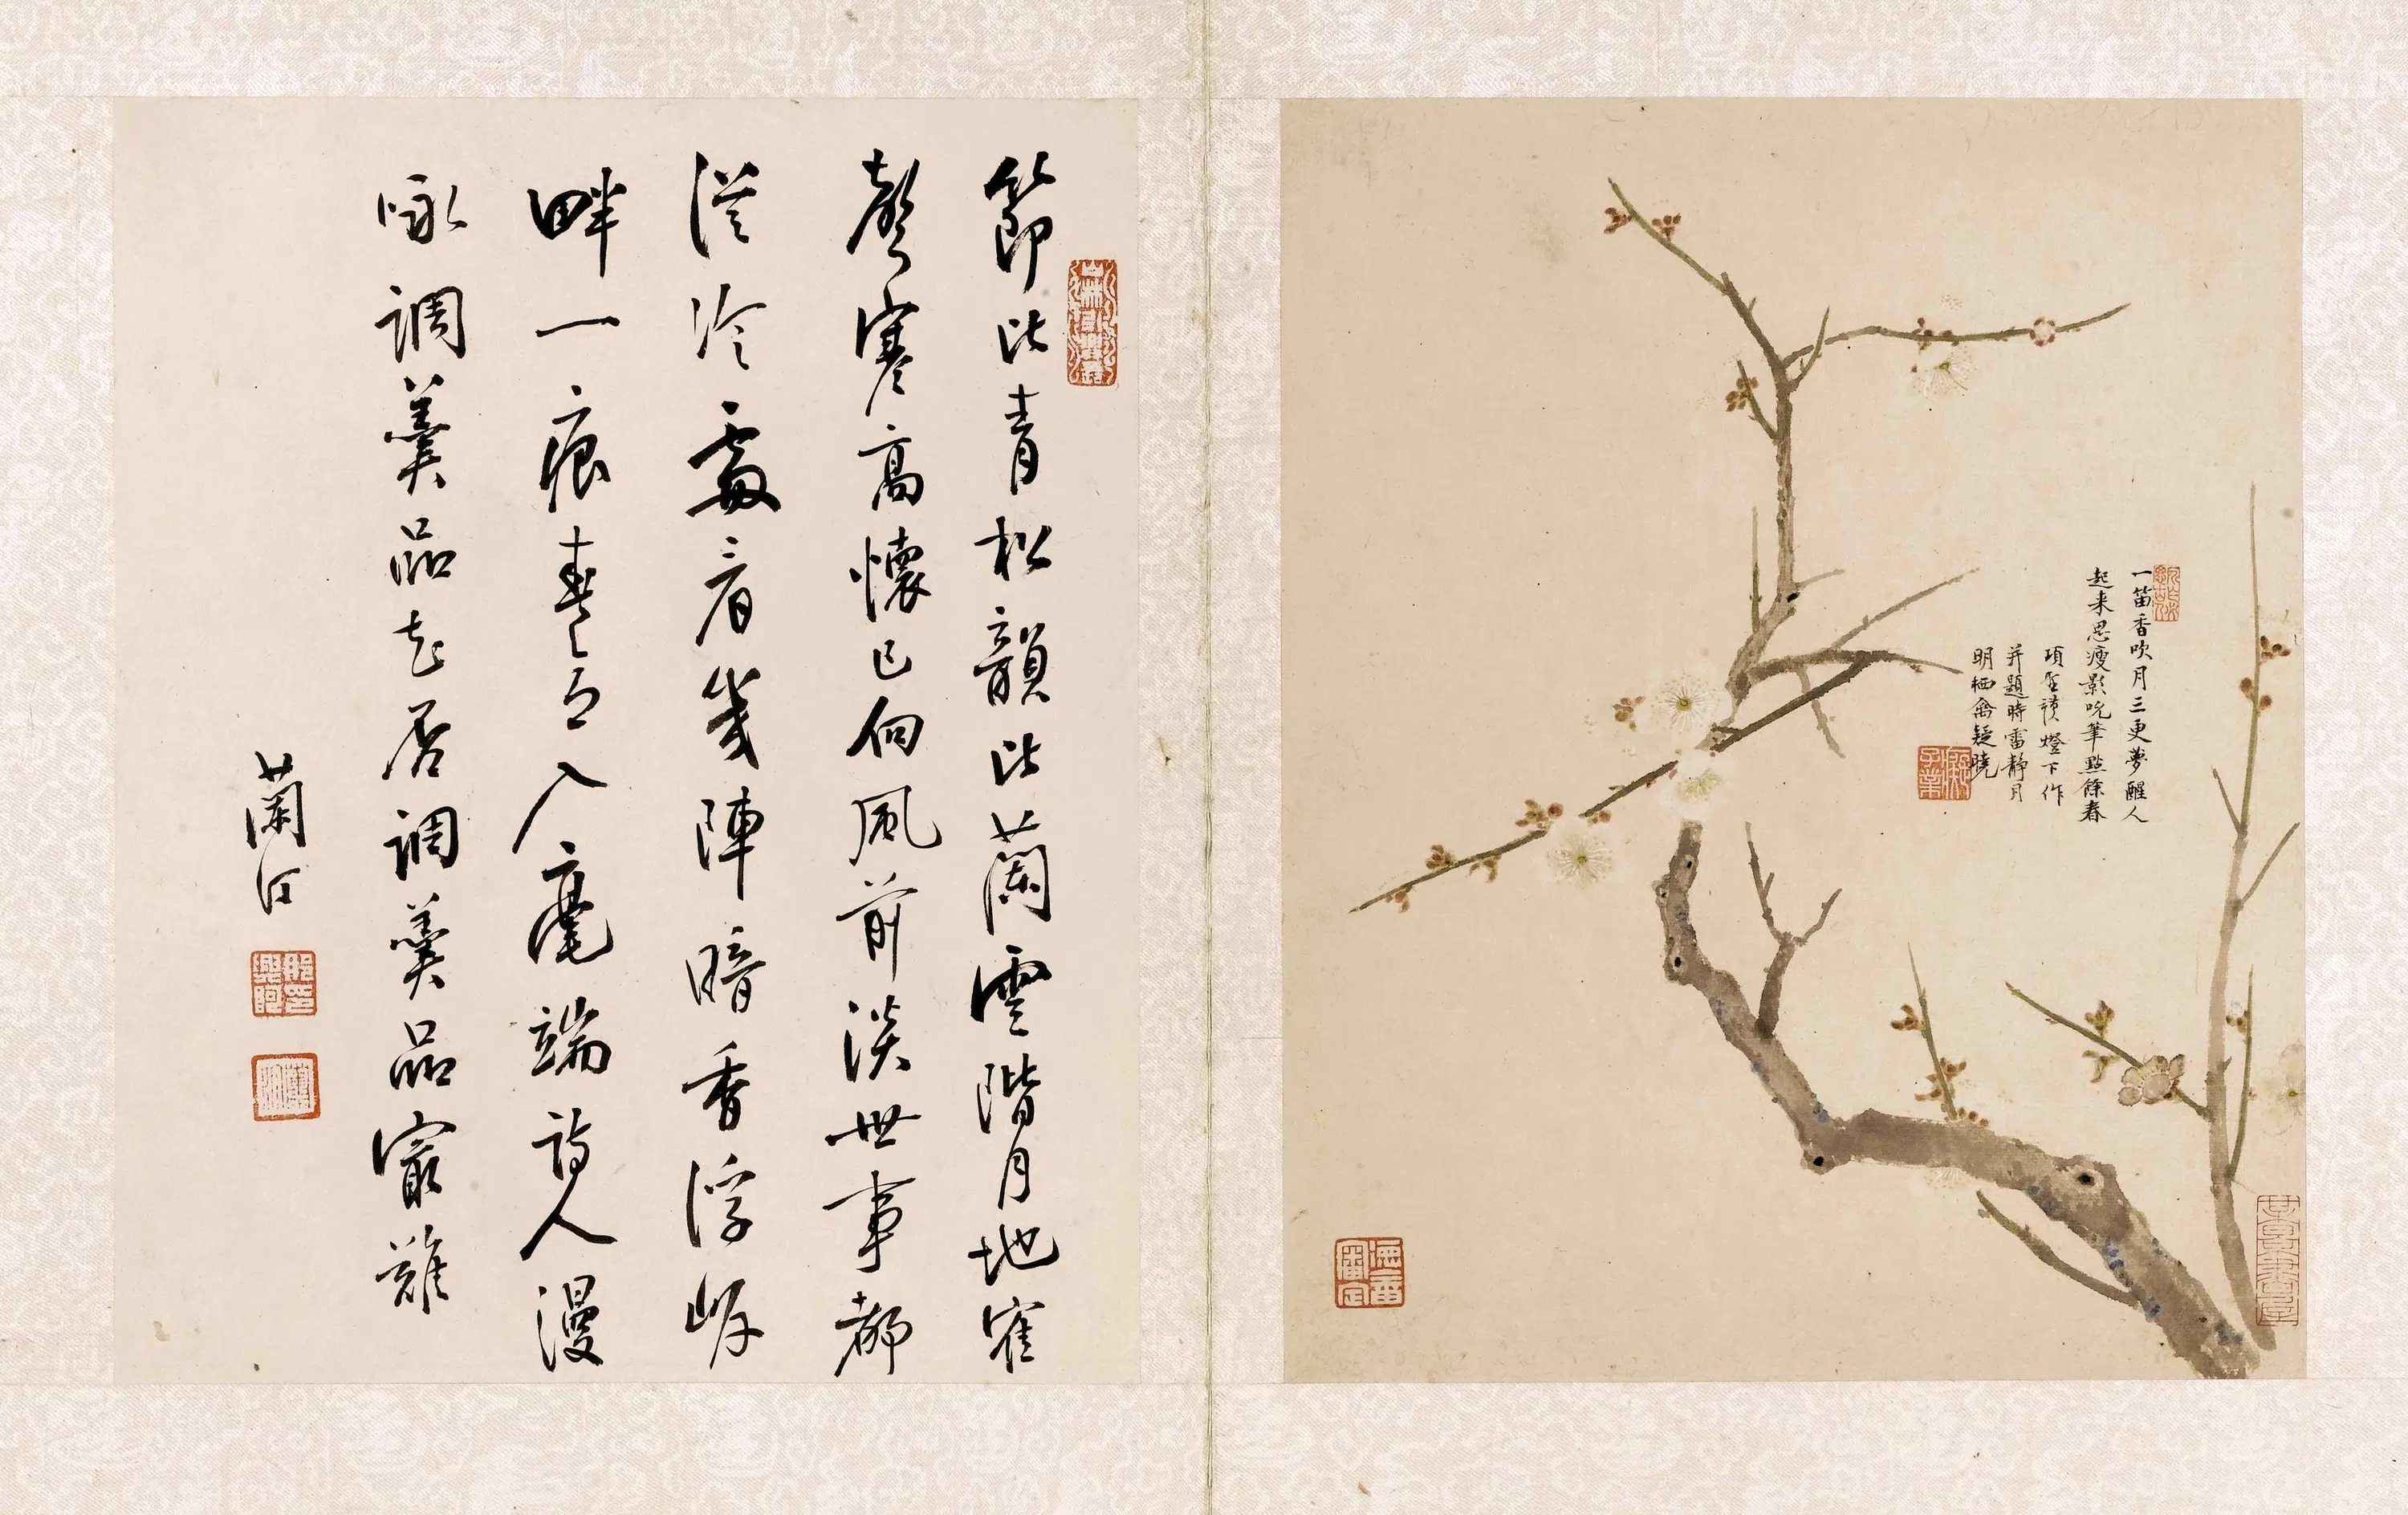 一笛香吹月三更夢醒人
起来思瘦影吮筆點餘春
項聖謨燈下作
并題時靜月
明栖禽疑曉
節比青松韻比蘭雲階月地寉
聲寒高懷已向風前淡世事都
從冷處看幾陣暗香浮岸
畔一痕春色入毫端詩人漫
咏調羹品知否調羹品最難
蘭汀
那興阿印